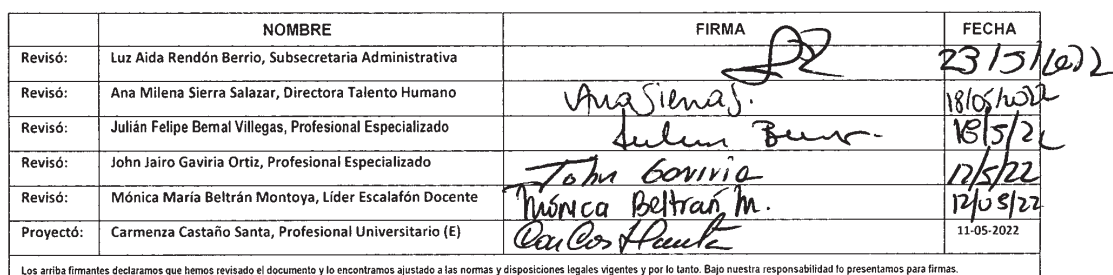 NOMBRE FIRMA FECHA
Revisó: Luz Aida Rendón Berrio, Subsecretaria Administrativa 23/5/2022
Revisó: Ana Milena Sierra Salazar, Directora Talento Humano Ana Sierra S. 18/05/2022
Revisó: Julián Felipe Bernal Villegas, Profesional Especializado 18/5/22
Revisó: John Jairo Gaviria Ortiz, Profesional Especializado John Gaviria 12/5/22
Revisó: Mónica María Beltrán Montoya, Líder Escalafón Docente Mónica Beltrán M. 12/05/22
Proyectó: Carmenza Castaño Santa, Profesional Universitario (E) 11-05-2022
Los arriba firmantes declaramos que hemos revisado el documento y lo encontramos ajustado a las normas y disposiciones legales vigentes y por lo tanto. Bajo nuestra responsabilidad lo presentamos para firmas.